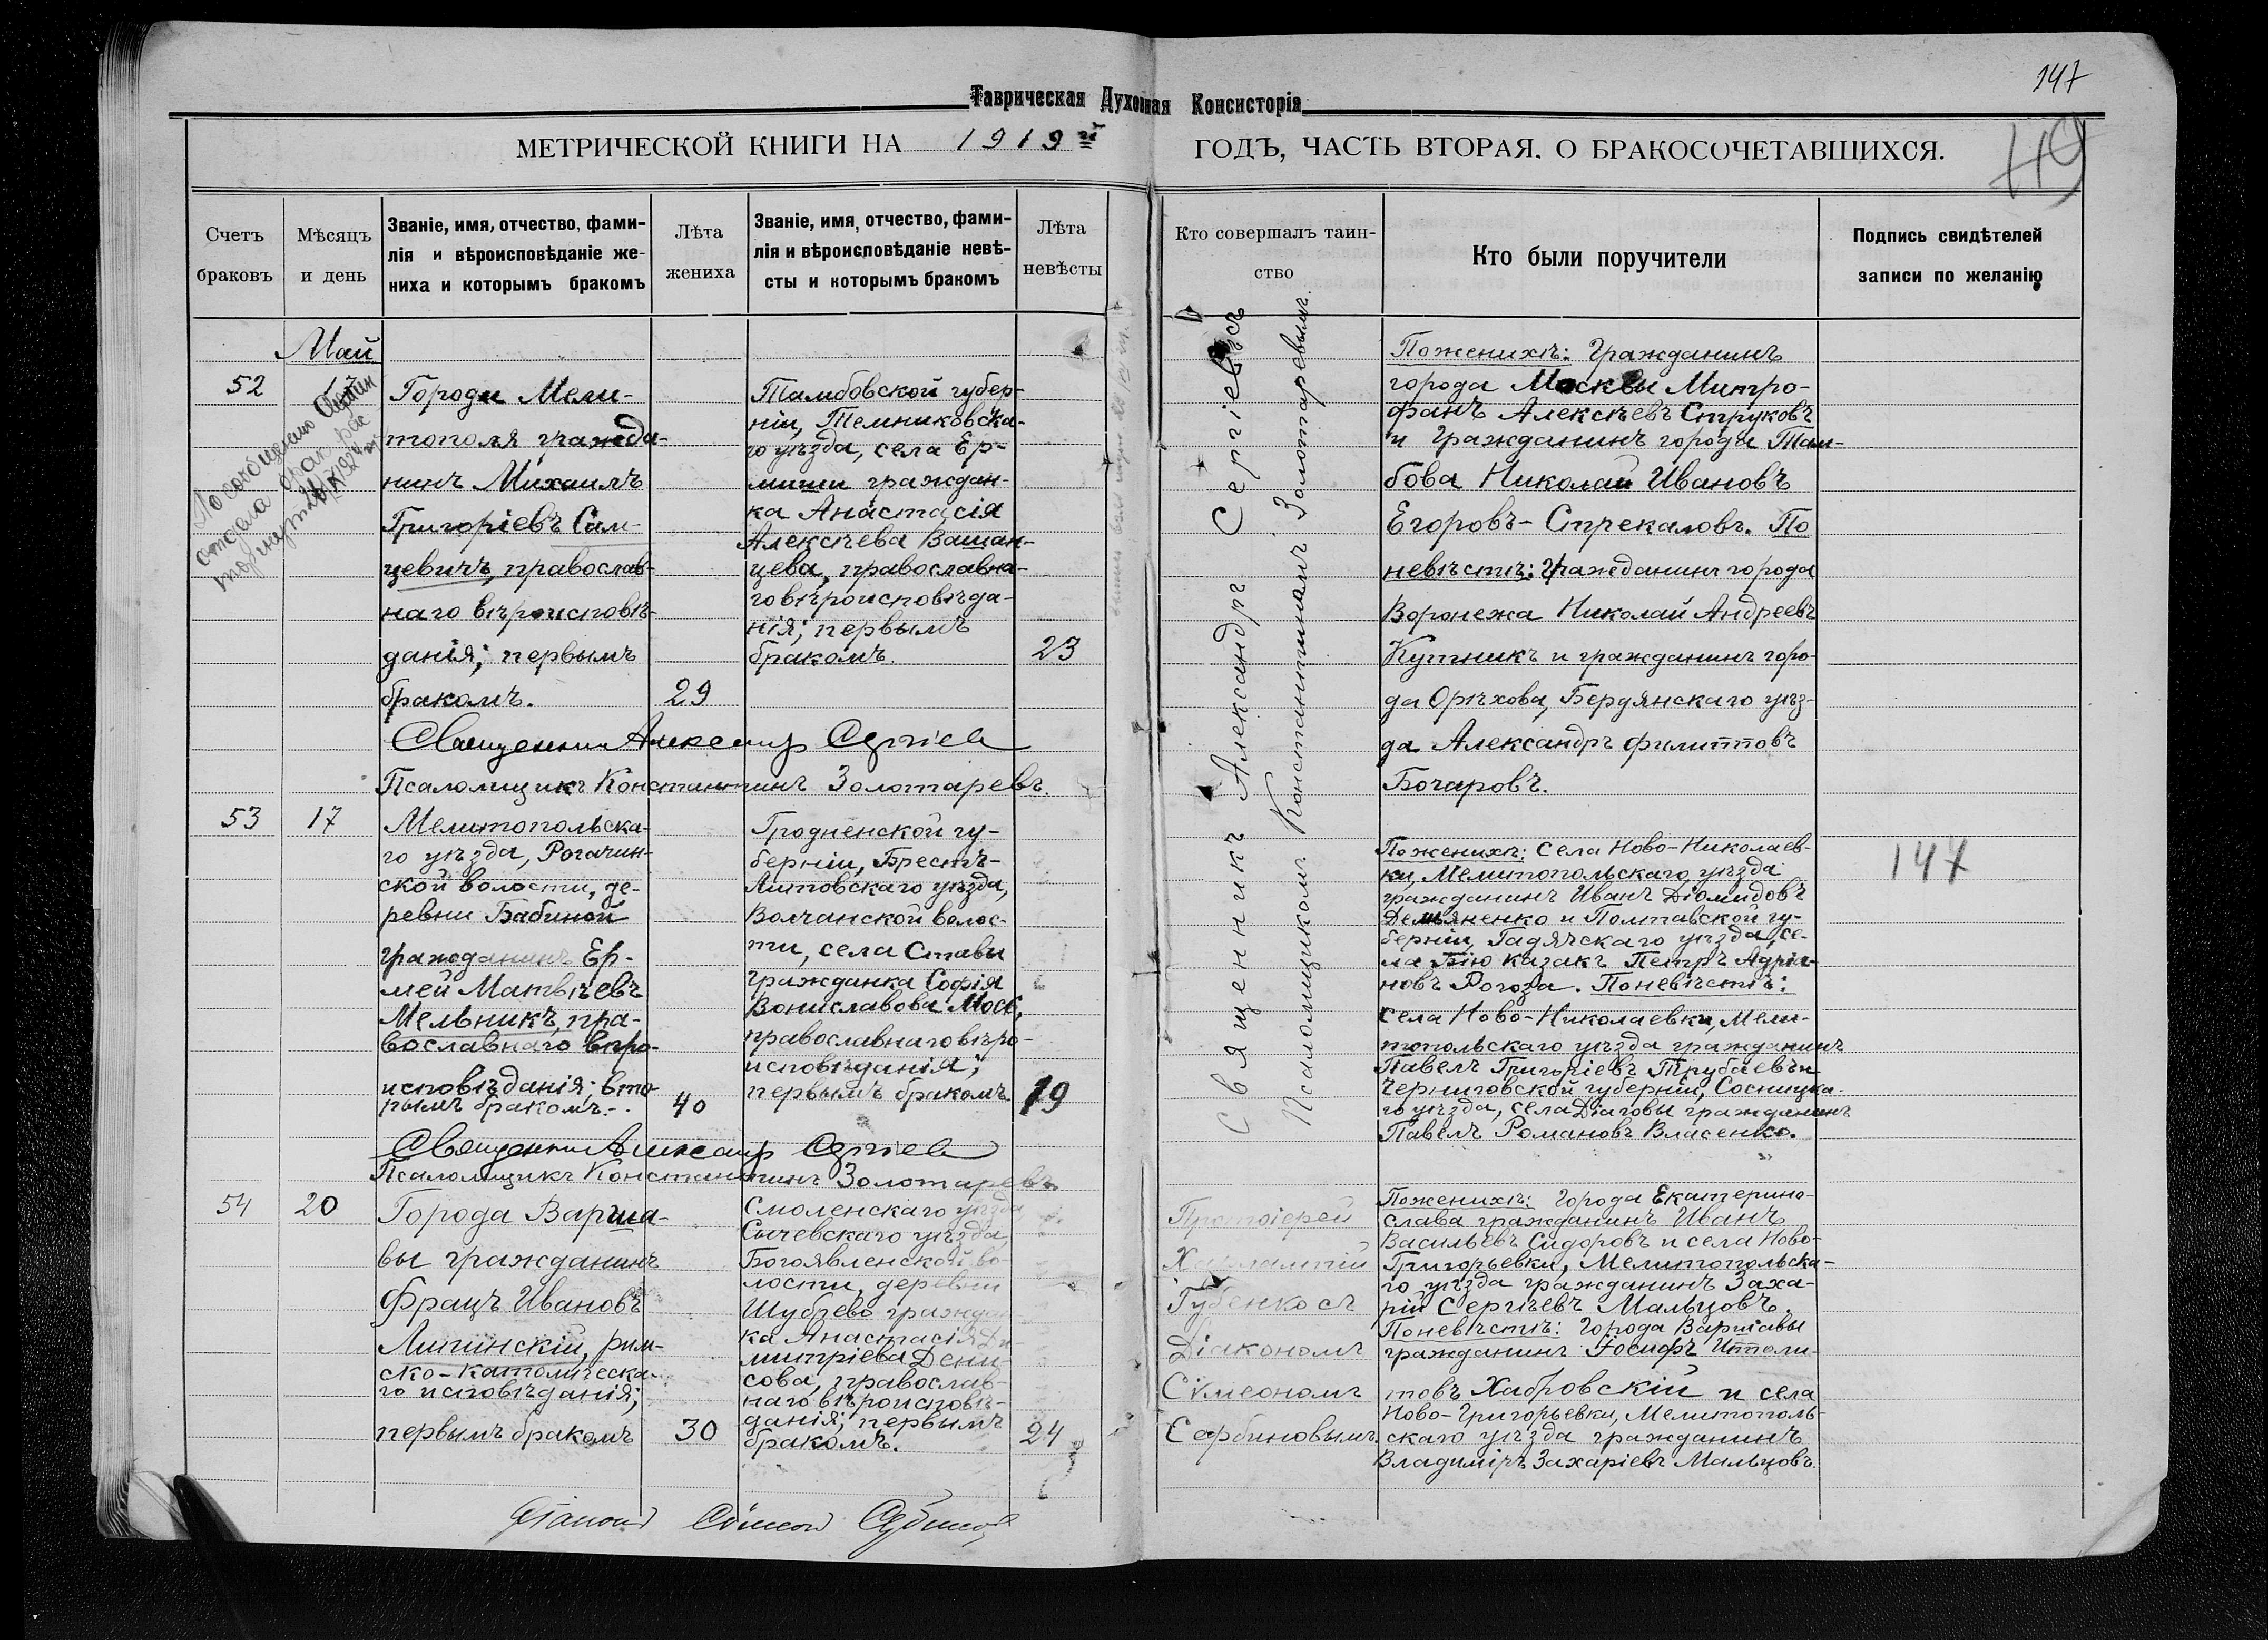 147
Таврическая Духовная Консисторія
МЕТРИЧЕСКОЙ КНИГИ НА 1919й ГОДЪ, ЧАСТЬ ВТОРАЯ. О БРАКОСОЧЕТАВШИХСЯ.
49
Счетъ браковъ
Мѣсяцъ и день
Званіе, имя, отчество, фами-
лія и вѣроисповѣданіе же-
ниха и которымъ бракомъ
Лѣта
жениха
Званіе, имя, отчество, фами-
лія и вѣроисповѣданіе невѣ-
сты и которымъ бракомъ
Лѣта
невѣсты
Кто совершалъ таин-
ство
Кто были поручители
Подпись свидѣтелей
записи по желанію
Май
52
По сообщению
отдела
брак
1924
Города Мели-
тополя гражда-
нинъ Михаилъ
Григоріевъ Сам-
цевичъ, православ-
наго вѣроисповѣ-
данія; первымъ
бракомъ.
29
Тамбовской губер-
ніи, Темниковска-
го уѣзда, села Ер-
миши граждан-
ка Анастасія
Алексѣева Вашан-
цева, православна-
го вѣроисповѣда-
нія; первымъ
бракомъ.
23
Священникъ Александръ Сергіевъ
Псаломщикъ Константинъ Золотаревъ.
Священникъ Александръ Сергіевъ съ
Псаломщикомъ Константиномъ Золотаревымъ.
Поженихѣ: Гражданинъ
города Москвы Митро-
фанъ Алексѣевъ Струковъ
и Гражданинъ города Там-
бова Николай Ивановъ
Егоровъ-Стрекаловъ. По
невѣстѣ: Гражданинъ города
Воронежа Николай Андреевъ
Кутникъ и гражданинъ горо-
да Орѣхова, Бердянскаго уѣз-
да Александръ Филипповъ
Бочаровъ.
53
17
Мелитопольска-
го уѣзда, Рогачин-
ской волости, де-
ревни Бабиной
гражданинъ Ер-
мей Матвѣевъ
Мельникъ, пра-
вославнаго вѣро-
исповѣданія; вто-
рымъ бракомъ.
40
Гродненской гу-
берніи, Брестъ-
Литовскаго уѣзда,
Волчанской волос-
ти, села Ставы
гражданка Софія
Вониславова Моск,
православнаго вѣро-
исповѣданія;
первымъ бракомъ
19
Священникъ Александръ Сергіевъ
Псаломщикъ Константинъ Золотаревъ.
Поженихѣ: села Ново-Николаев-
ки, Мелитопольскаго уѣзда
гражданинъ Иванъ Діомидовъ
Демьяненко и Полтавской гу-
берніи, Гадячскаго уѣзда, се-
ла Бію казакъ Петръ Адріа-
новъ Рогоза. Поневѣстѣ:
села Ново-Николаевки, Мели-
топольскаго уѣзда гражданинъ
Павелъ Григоріевъ Трубаевъ и
Черниговской губерніи, Сосницка-
го уѣзда, села Дяговы гражданинъ
Павелъ Романовъ Власенко.
147
54
20
Города Варша-
вы гражданинъ
Францъ Ивановъ
Липинскій, рим-
ско-католическа-
го исповѣданія;
первымъ бракомъ
30
Смоленскаго уѣзда
Сычевскаго уѣзда,
Богоявленской во-
лости, деревни
Шубѣево граждан
ка Анастасія Ди-
митріева Дени-
сова, православ-
наго вѣроисповѣ-
данія; первымъ
бракомъ.
24
Протоіерей
Харлампій
Губенко съ
Діакономъ
Сімеономъ
Сербиновымъ.
Поженихѣ: города Екатерино-
слава гражданинъ Иванъ
Васильевъ Сидоровъ и села Ново-
Григорьевки, Мелитопольска-
го уѣзда гражданинъ Заха-
рій Сергѣевъ Мальцовъ.
Поневѣстѣ: города Варшавы
гражданинъ Іосифъ Иппали-
товъ Хабровскій и села
Ново-Григорьевки, Мелитополь-
скаго уѣзда гражданинъ
Владиміръ Захаріевъ Мальцовъ.
Діаконъ Сімеонъ Сербиновъ